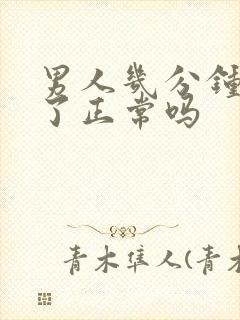 男人几分鍾
了正常吗
青木隼人(青木